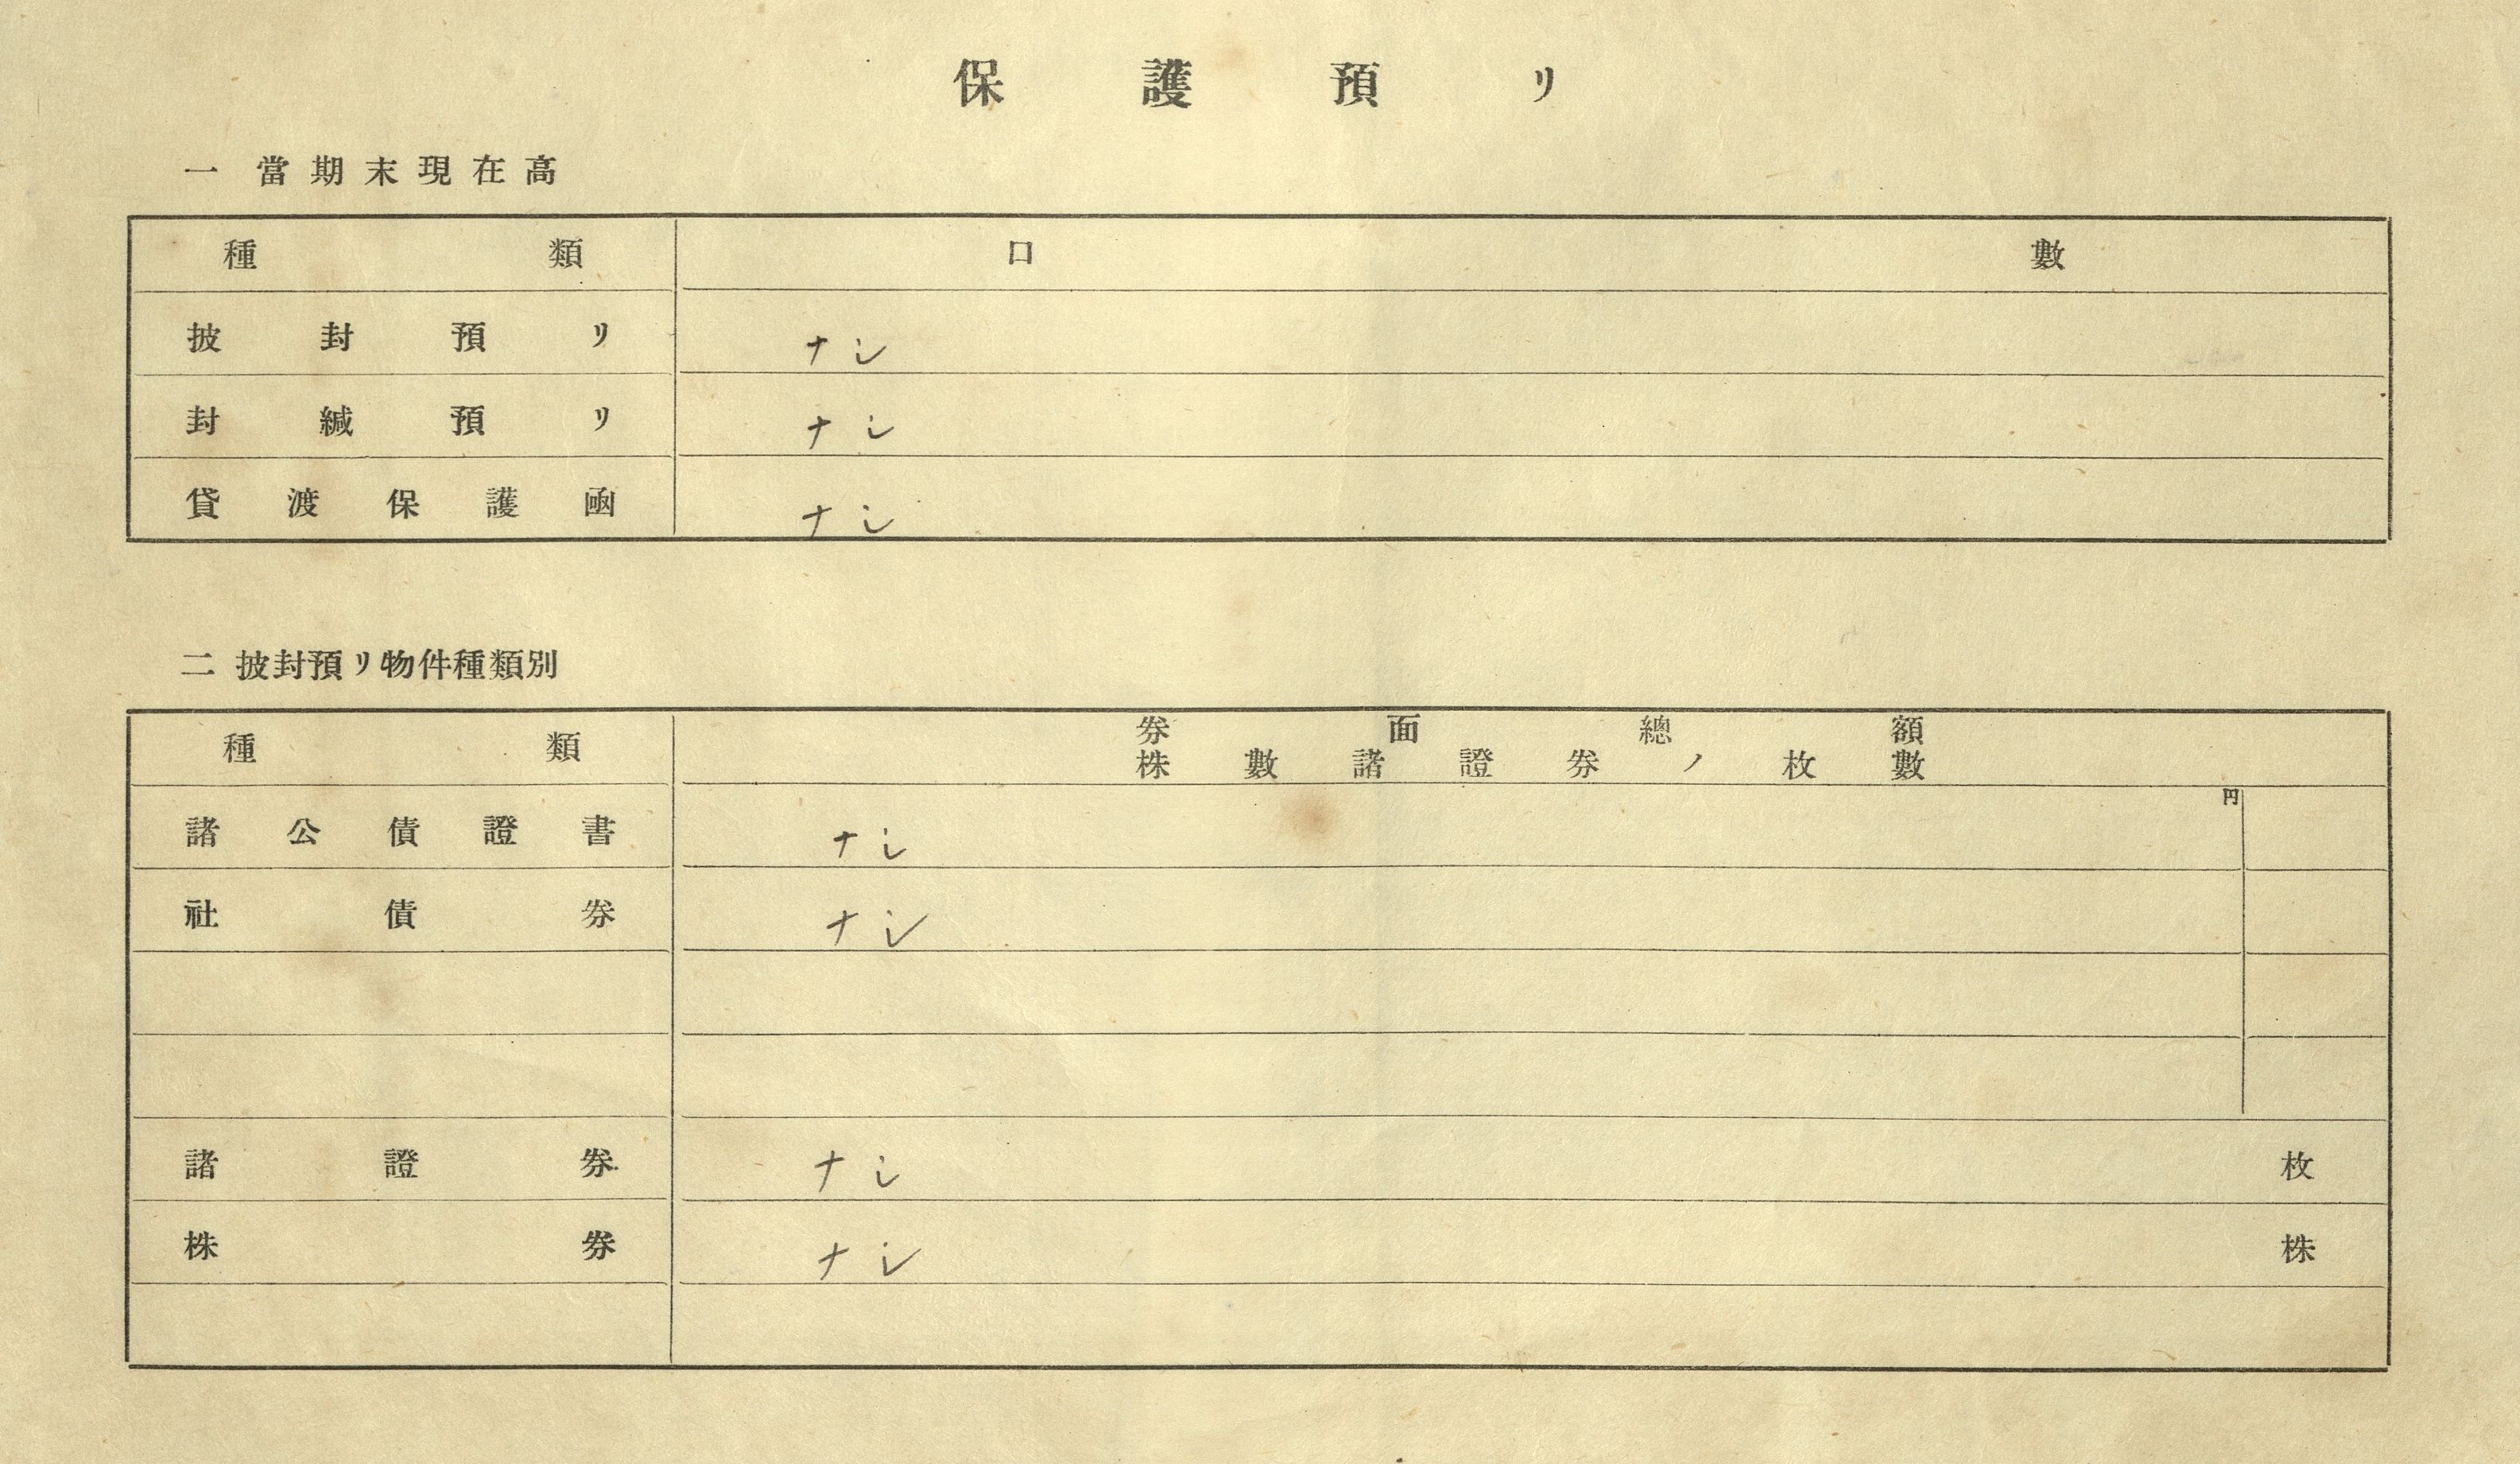 保護預リ
一 當期末現在高
種類 口數
披封預リ ナシ
封緘預リ ナシ
貸渡保護凾 ナシ
二 披封預リ物件種類別
種類 券面總額
株數諸證券ノ枚數
円
諸公債證書 ナシ
社債券 ナシ
諸證券 ナシ 枚
株券 ナシ 株